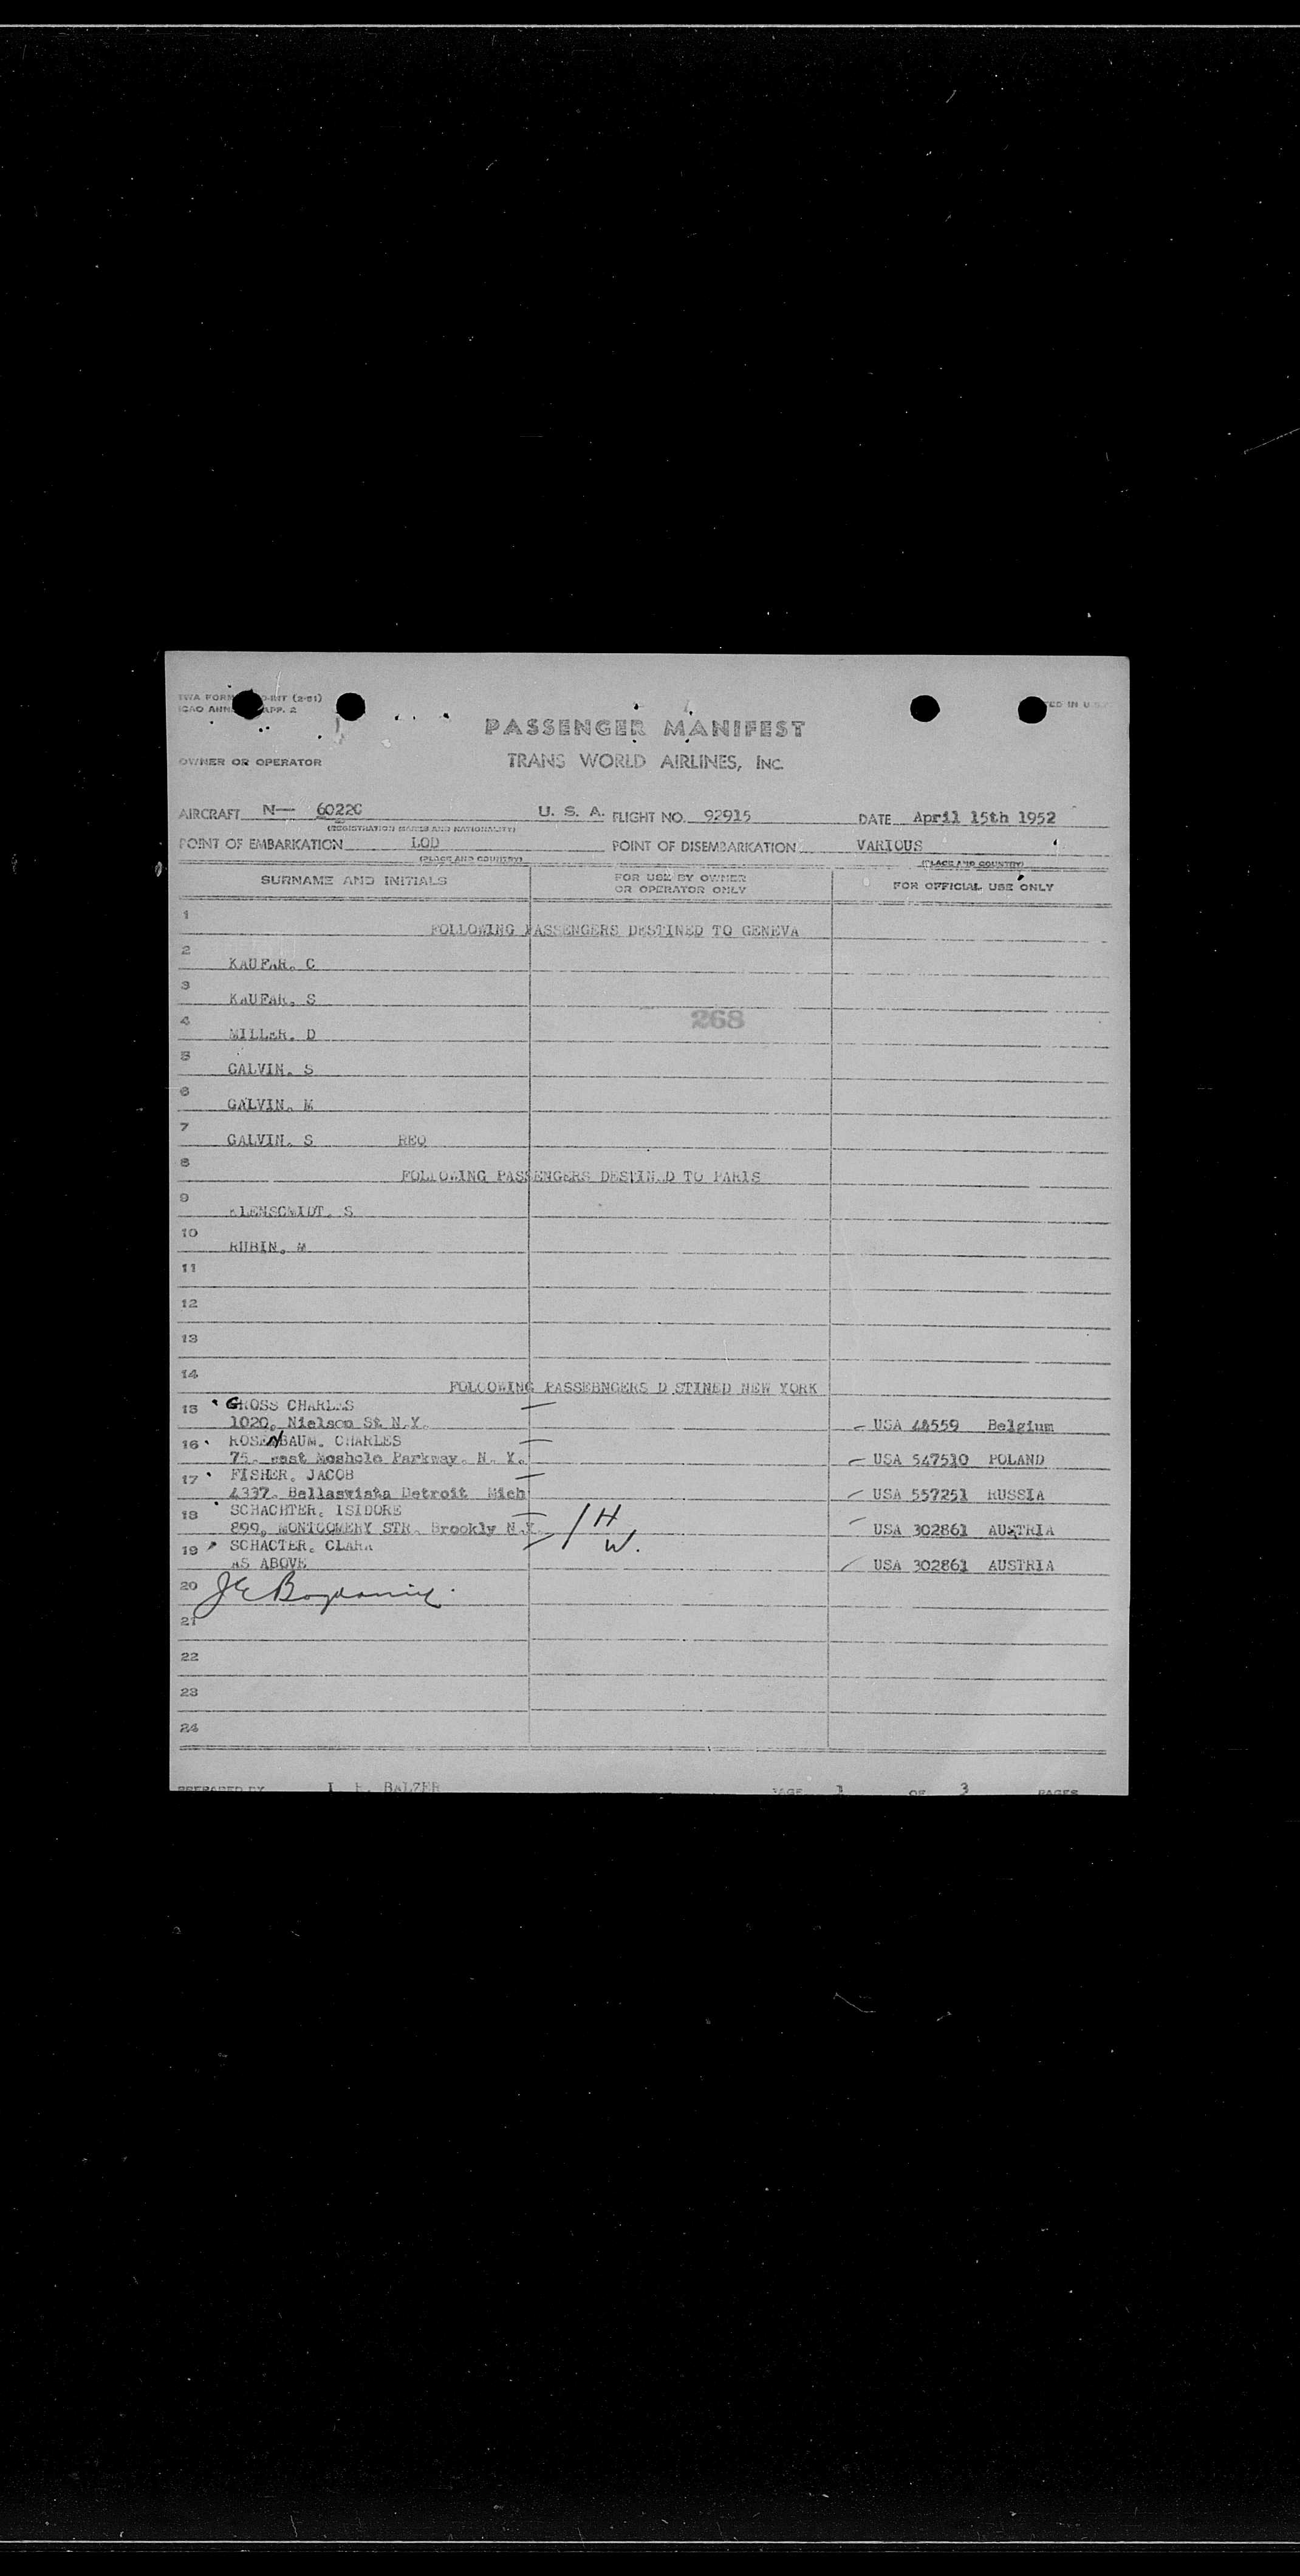 TWA FORM
ICAO ANN APP. 2
PASSENGER MANIFEST
OWNER OR OPERATOR TRANS WORLD AIRLINES, INC.
AIRCRAFT N— 6022C U. S. A. FLIGHT NO. 92915 DATE April 15th 1952
(REGISTRATION MARKS AND NATIONALITY)
POINT OF EMBARKATION LOD POINT OF DISEMBARKATION VARIOUS
(PLACE AND COUNTRY) (PLACE AND COUNTRY)
SURNAME AND INITIALS FOR USE BY OWNER OR OPERATOR ONLY FOR OFFICIAL USE ONLY
1 FOLLOWING PASSENGERS DESTINED TO GENEVA
2 KAUFAR. C
3 KAUFAR. S
268
4 MILLER. D
5 GALVIN. S
6 GALVIN. M
7 GALVIN. S REQ
8 FOLLOWING PASSENGERS DESTIN D TO PARIS
9 S
10 RUBIN. M
11
12
13
14 FOLLOWING PASSEBNGERS D STINED NEW YORK
15 GROSS CHARLES
1020, Nielson St N.Y. USA 48559 Belgium
16 ROSENBAUM. CHARLES
75. east Mosholo Parkway. N. Y. USA 547510 POLAND
17 FISHER. JACOB
4337. Bellasvista Detroit Mich USA 557251 RUSSIA
18 SCHACHTER. ISIDORE
899, MONTGOMERY STR. Brookly N.Y. / H USA 302861 AUSTRIA
19 SCHACTER. CLARA W.
AS ABOVE USA 302861 AUSTRIA
20
21
22
23
24
PREPARED BY BALZER PAGE 1 OF 3 PAGES